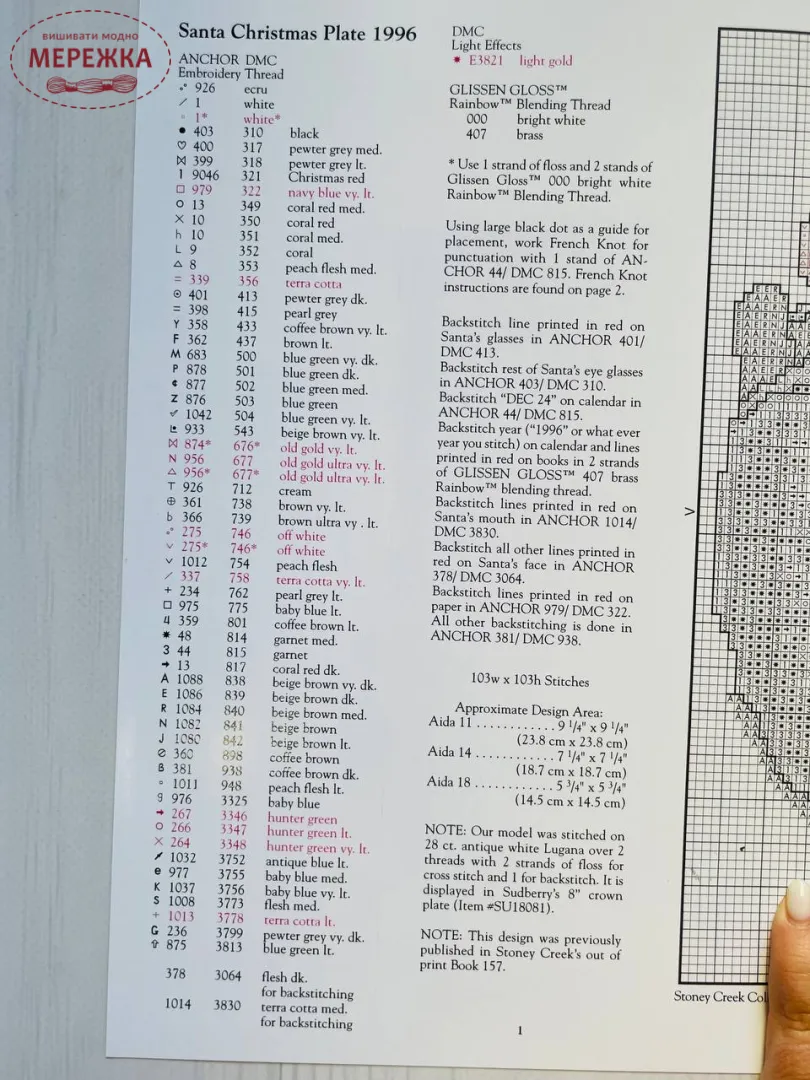 вишивати модно
МЕРЕЖКА
Santa Christmas Plate 1996
ANCHOR DMC
Embroidery Thread
926 ecru
/ 1 white
1* white*
● 403 310 black
♡ 400 317 pewter grey med.
⋈ 399 318 pewter grey lt.
l 9046 321 Christmas red
□ 979 322 navy blue vy. lt.
O 13 349 coral red med.
X 10 350 coral red
h 10 351 coral med.
L 9 352 coral
△ 8 353 peach flesh med.
= 339 356 terra cotta
⊙ 401 413 pewter grey dk.
= 398 415 pearl grey
Y 358 433 coffee brown vy. lt.
F 362 437 brown lt.
M 683 500 blue green vy. dk.
P 878 501 blue green dk.
¢ 877 502 blue green med.
Z 876 503 blue green
1042 504 blue green vy. lt.
933 543 beige brown vy. lt.
⋈ 874* 676* old gold vy. lt.
N 956 677 old gold ultra vy. lt.
△ 956* 677* old gold ultra vy. lt.
T 926 712 cream
⊕ 361 738 brown vy. lt.
b 366 739 brown ultra vy . lt.
275 746 off white
v 275* 746* off white
v 1012 754 peach flesh
/ 337 758 terra cotta vy. lt.
+ 234 762 pearl grey lt.
□ 975 775 baby blue lt.
4 359 801 coffee brown lt.
✷ 48 814 garnet med.
3 44 815 garnet
➔ 13 817 coral red dk.
A 1088 838 beige brown vy. dk.
E 1086 839 beige brown dk.
R 1084 840 beige brown med.
N 1082 841 beige brown
J 1080 842 beige brown lt.
⊘ 360 898 coffee brown
8 381 938 coffee brown dk.
▫ 1011 948 peach flesh lt.
9 976 3325 baby blue
➔ 267 3346 hunter green
O 266 3347 hunter green lt.
X 264 3348 hunter green vy. lt.
1032 3752 antique blue lt.
e 977 3755 baby blue med.
K 1037 3756 baby blue vy. lt.
S 1008 3773 flesh med.
+ 1013 3778 terra cotta lt.
G 236 3799 pewter grey vy. dk.
⇧ 875 3813 blue green lt.
378 3064 flesh dk.
for backstitching
1014 3830 terra cotta med.
for backstitching
DMC
Light Effects
✷ E3821 light gold
GLISSEN GLOSS™
Rainbow™ Blending Thread
000 bright white
407 brass
* Use 1 strand of floss and 2 stands of
Glissen Gloss™ 000 bright white
Rainbow™ Blending Thread.
Using large black dot as a guide for
placement, work French Knot for
punctuation with 1 stand of AN-
CHOR 44/ DMC 815. French Knot
instructions are found on page 2.
Backstitch line printed in red on
Santa's glasses in ANCHOR 401/
DMC 413.
Backstitch rest of Santa's eye glasses
in ANCHOR 403/ DMC 310.
Backstitch "DEC 24" on calendar in
ANCHOR 44/ DMC 815.
Backstitch year ("1996" or what ever
year you stitch) on calendar and lines
printed in red on books in 2 strands
of GLISSEN GLOSS™ 407 brass
Rainbow™ blending thread.
Backstitch lines printed in red on
Santa's mouth in ANCHOR 1014/
DMC 3830.
Backstitch all other lines printed in
red on Santa's face in ANCHOR
378/ DMC 3064.
Backstitch lines printed in red on
paper in ANCHOR 979/ DMC 322.
All other backstitching is done in
ANCHOR 381/ DMC 938.
103w x 103h Stitches
Approximate Design Area:
Aida 11 ............ 9 1/4" x 9 1/4"
(23.8 cm x 23.8 cm)
Aida 14 ........... 7 1/4" x 7 1/4"
(18.7 cm x 18.7 cm)
Aida 18 ........... 5 3/4" x 5 3/4"
(14.5 cm x 14.5 cm)
NOTE: Our model was stitched on
28 ct. antique white Lugana over 2
threads with 2 strands of floss for
cross stitch and 1 for backstitch. It is
displayed in Sudberry's 8" crown
plate (Item #SU18081).
NOTE: This design was previously
published in Stoney Creek's out of
print Book 157.
1
Stoney Creek